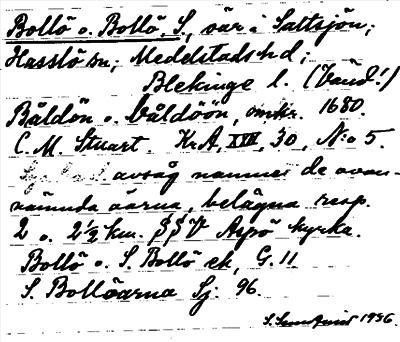 Bollö o. Bollö, S., öar i Saltsjön;
Hasslö sn; Medelstads hd;
Blekinge l. (Vänd!)
Båldön o. båldöön, omkr. 1680.
C. M. Stuart. KrA, XVII, 30, N:o 5.
avsåg namnet de ovan-
nämnda öarna, belägna resp.
2 o. 2½ km. SSV Aspö kyrka.
Bollö o. S. Bollö ek, G. 11
S. Bollöarna Sj. 96.
1936.